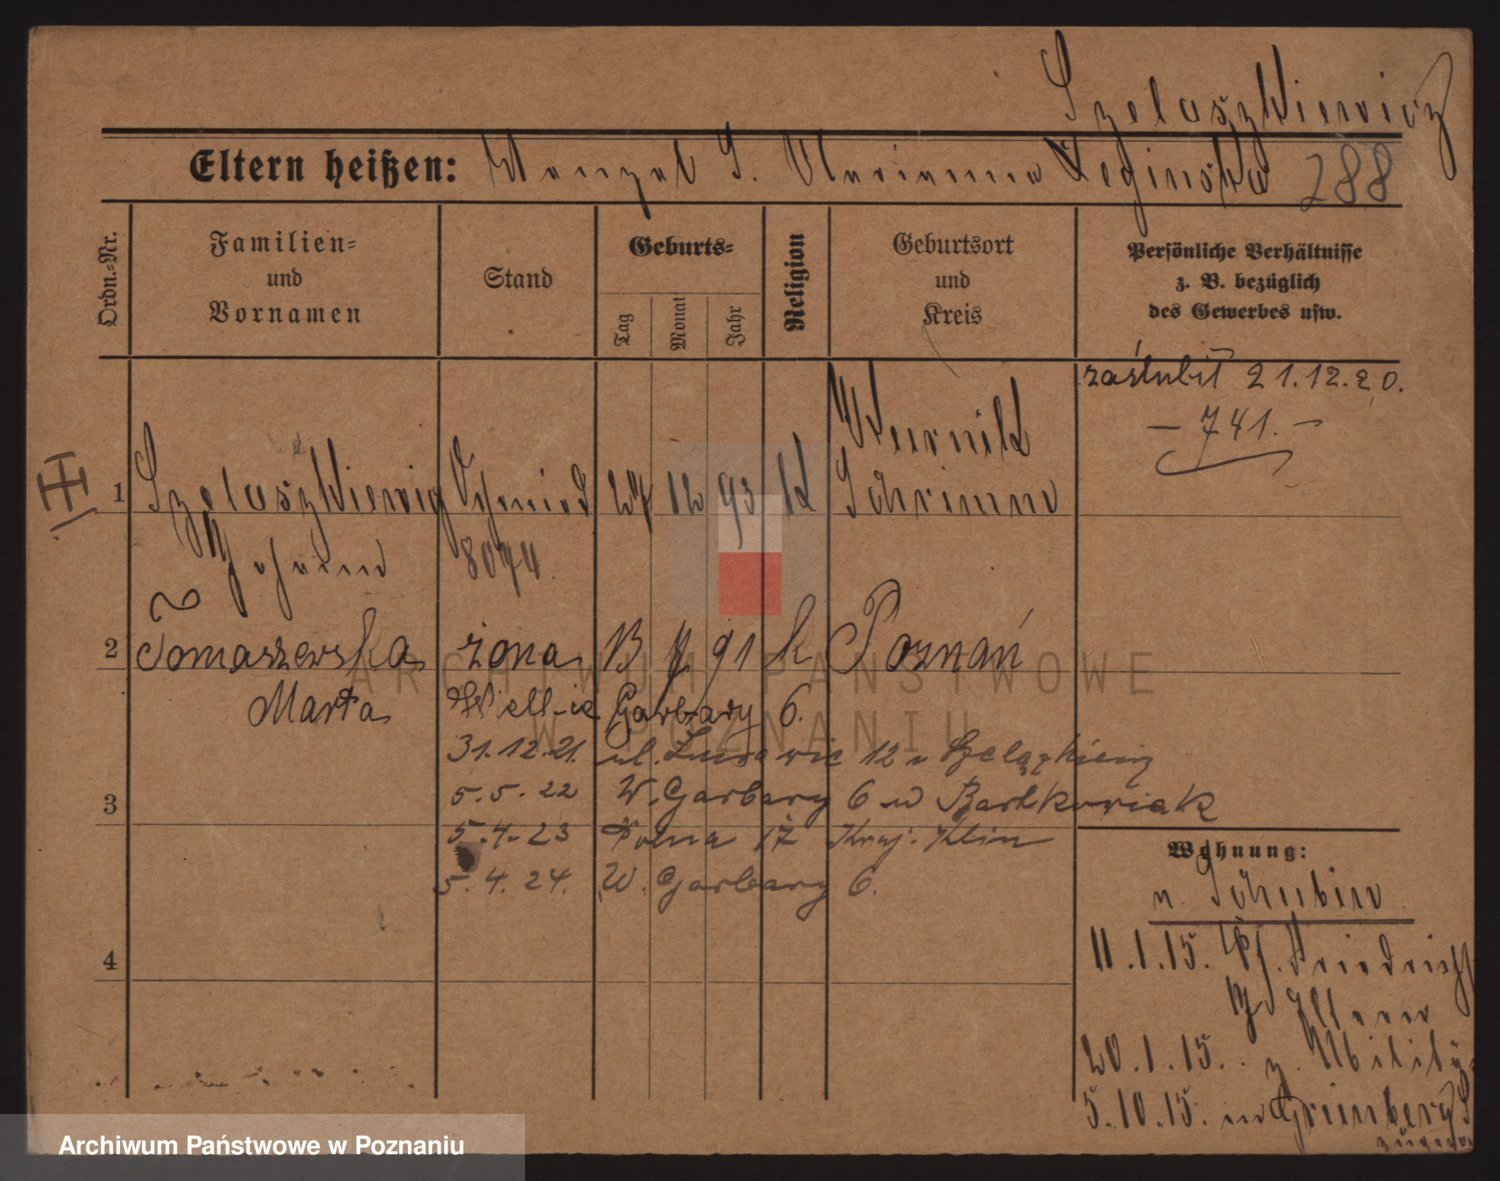 Szelaszkiewicz
Eltern heißen: Wenzel S. Marianna Zeginska 288
Ordn.-Nr.
Familien-
und
Vornamen
Stand
Geburts-
Tag
Monat
Jahr
Religion
Geburtsort
und
Kreis
Persönliche Verhältnisse
z. B. bezüglich
des Gewerbes usw.
zaślubił 21.12.20.
- 741. -
1 Szelaszkiewicz Schmied 27 12 93 k
Schrimm
Johann 8074.
2 Tomaszewska żona 13 7 91 k Poznań
Marta Garbary 6.
31.12.21. ul. 12
3
5.5.22 W. Garbary 6 Bartkowiak
5.4.23 Polna 17
Wohnung:
n. Schubin
5.4.24. W. Garbary 6.
4
11.1.15.
z. Eltern
20.1.15. z. Militär
5.10.15. Grünberg
ARCHIWUM PAŃSTWOWE
W POZNANIU
Archiwum Państwowe w Poznaniu